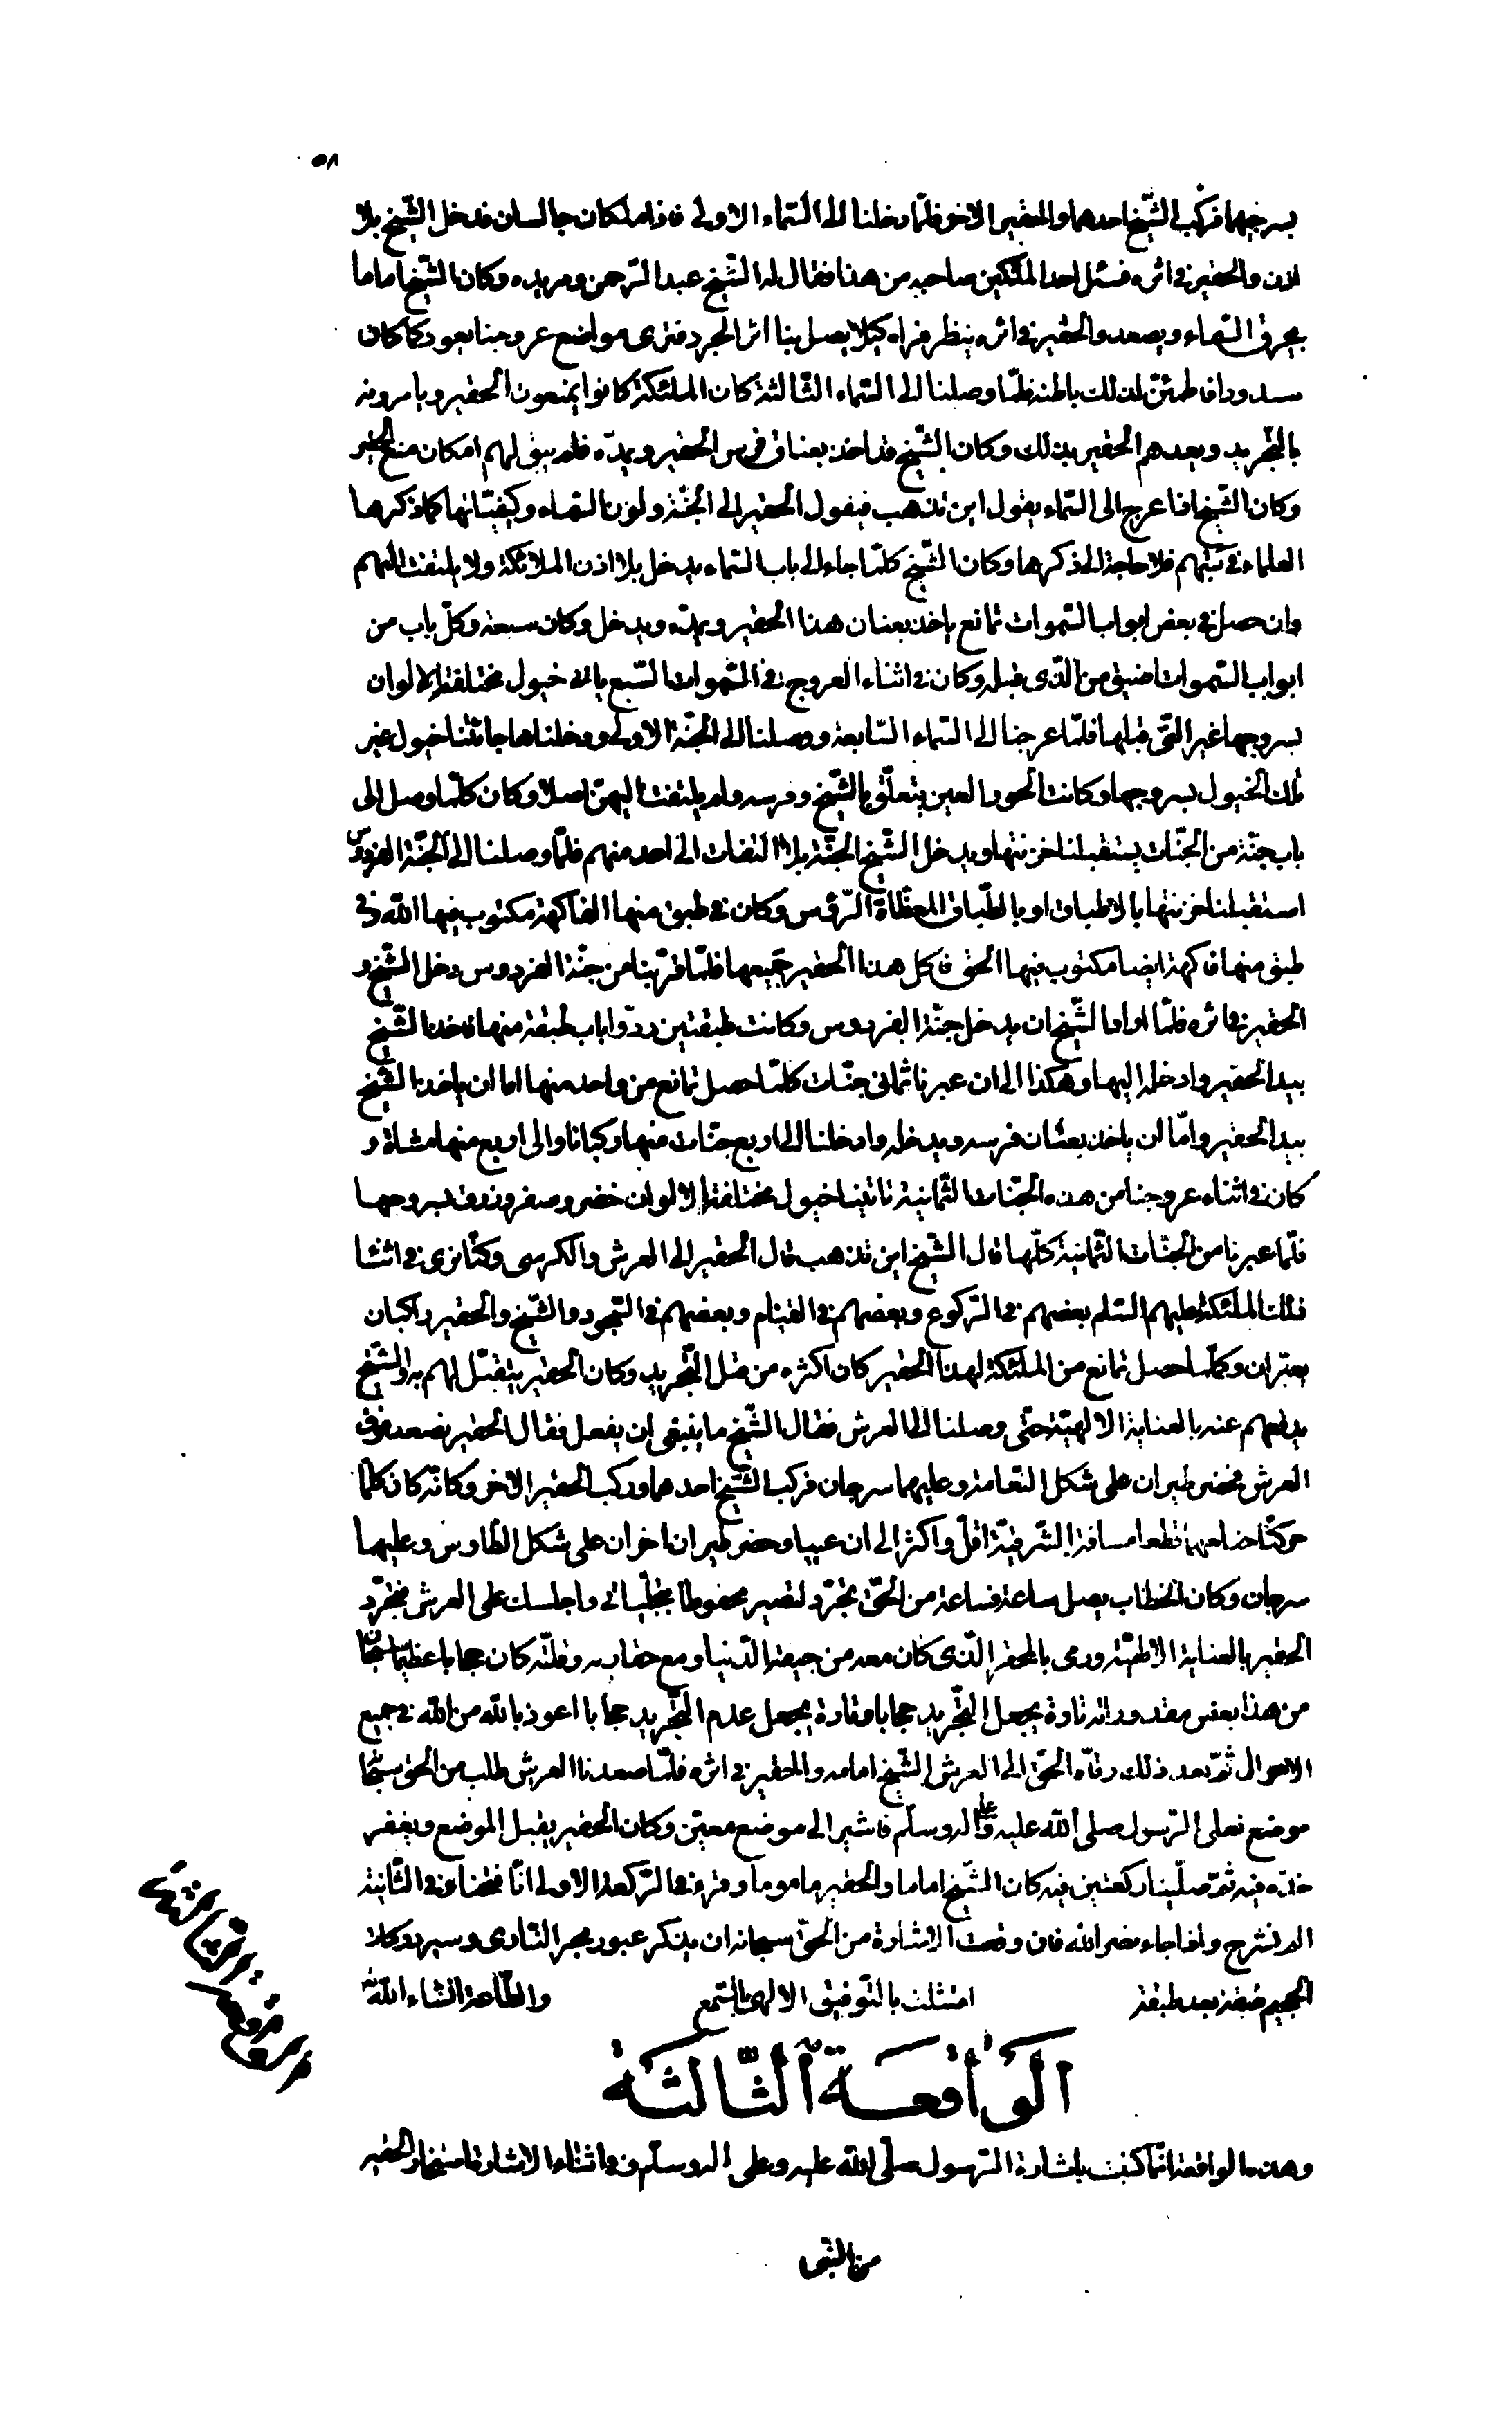 ٥٨
بسرجيهما فركب الشّيخ احدهما والحقير الاخر فلمّا دخلنا الى السّماء الاولى فاذا ملكان جالسان فدخل الشّيخ بلا
اذن والحقير فى اثره فسئل احد الملكين صاحبه من هذا فقال له الشّيخ عبد الرّحمن ومريده وكان الشّيخ اماما
يخرق السّماء ويصعد والحقير فى اثره ينظر فراه كيلا يصل بنا اثر الجرد فترى مواضع عروجنا يعود كما كان
مسدودا فاطمئنّ لذلك باطنه فلمّا وصلنا الى السّماء الثّالثة كان الملئكة كانوا يمنعون الحقير ويامرونه
بالتّجريد ويعدهم الحقير بذلك وكان الشّيخ قد اخذ بعنان فرس الحقير ويمدّه فلم يبق لهم امكان منع الحقير
وكان الشّيخ اذا عرج الى السّماء يقول اين تذهب فيقول الحقير الى الجنّة ولون السّماء وكيفيّاتها كما ذكرها
العلماء فى كتبهم فلا حاجة الى ذكرها وكان الشّيخ كلّما جاء الى باب السّماء يدخل بلا اذن الملائكة ولا يلتفت اليهم
وان حصل فى بعض ابواب السّموات تمانع ياخذ بعنان هذا الحقير ويمدّه ويدخل وكان سبعة وكلّ باب من
ابواب السّموات اضيق من الّذى قبله وكان فى اثناء العروج فى السّموات السّبع ياتى خيول مختلفة الالوان
بسروجها غير الّتى قبلها فلمّا عرجنا الى السّماء السّابعة ووصلنا الى الجنّة الاولى ودخلناها جائتنا خيول غير
تلك الخيول بسروجها وكانت الحور العين يتعلّق بالشّيخ وفرسه ولم يلتفت اليهنّ اصلا وكان كلّما وصل الى
باب جنّة من الجنّات يستقبلنا خزنتها ويدخل الشّيخ الجنّة بلا التفات الى احد منهم فلمّا وصلنا الى الجنّة الفردوس
استقبلنا خزنتها بالاطباق او بالطّباق المغطّاة الرّؤس وكان فى طبق منها الفاكهة مكتوب فيها اللّه وفى
طبق منها فاكهة ايضا مكتوب فيها الحق فاكل هذا الحقير جميعها فلمّا قربنا من جنّة الفردوس دخل الشّيخ و
الحقير فى اثره فلمّا اراد الشّيخ ان يدخل جنّة الفردوس وكانت طبقتين ردّوا باب طبقة منها فاخذ الشّيخ
بيد الحقير وادخله اليها وهكذا الى ان عبرنا ثمانى جنّات كلّما حصل تمانع من واحد منها اما ان ياخذ الشّيخ
بيد الحقير وامّا ان ياخذ بعنان فرسه ويدخله وادخلنا الى اربع جنّات منها ركبانا والى اربع منها مشاة و
كان فى اثناء عروجنا من هذه الجنّات الثّمانية تاتينا خيول مختلفة الالوان خضر وصفر وزرق بسروجها
فلمّا عبرنا من الجنّات الثّمانية كلّها قال الشّيخ اين تذهب قال الحقير الى العرش والكرسى وكنّا نرى فى اثناء
ذلك الملئكة عليهم السّلم بعضهم فى الرّكوع وبعضهم فى القيام وبعضهم فى السّجود والشّيخ والحقير راكبان
يعبران وكلّما حصل تمانع من الملئكة لهذا الحقير كان اكثره من قبل التّجريد وكان الحقير يتقبّل لهم به والشّيخ
يدفعهم عنه بالعناية الالهيّة حتّى وصلنا الى العرش فقال الشّيخ ما ينبغى ان يفعل فقال الحقير نصعد فوق
العرش فحضر طيران على شكل النّعامة وعليهما سرجان فركب الشّيخ احدهما وركب الحقير الاخر وكانّه كان كلّما
حركنا جناحهما قطعا مسافة الشّرقيّة اقلّ واكثر الى ان عييا وحضر طيران اخران على شكل الطاوس وعليهما
سرجان وكان الخطاب يصل ساعة فساعة من الحقّ تجرّد لتصير محفوظا بتجلّياتى واجلسك على العرش فتجرّد
الحقير بالعناية الالهيّة ورمى بالمحقر الّذى كان معه من جيفة الدّنيا ومع حقارته وقلّته كان حجابا عظيما سبحان
من هذا بعض مقدوراته تارة يجعل التّجريد حجابا وتارة يجعل عدم التّجريد حجابا اعوذ باللّه من اللّه فى جميع
الاحوال ثمّ بعد ذلك رقّاه الحقّ الى العرش الشّيخ امامه والحقير فى اثره فلمّا صعدنا العرش طلب من الحق سبحانه
موضع نعلى الرّسول صلى اللّه عليه وعلى اله وسلّم فاشير الى موضع معيّن وكان الحقير يقبل الموضع ويعفر
خدّه فيه ثمّ صلّينا ركعتين فيه كان الشّيخ اماما والحقير ماموما وقرء فى الرّكعة الاولى انّا فتحنا وفى الثّانية
الم نشرح واذا جاء نصر اللّه فان وقعت الاشارة من الحقّ سبحانه ان يذكر عبور بحر النّار وسير دركات
الجحيم طبقة بعد طبقة امتثلت بالتّوفيق الالهى بالسّمع والطّاعة انشاء اللّه
الواقعة الثّالثة
وهذه الواقعة انّما كتبت باشارة الرّسول صلّى اللّه عليه وعلى اله وسلّم وفى اثناء الاشارة استخار الحقير
من النّبى